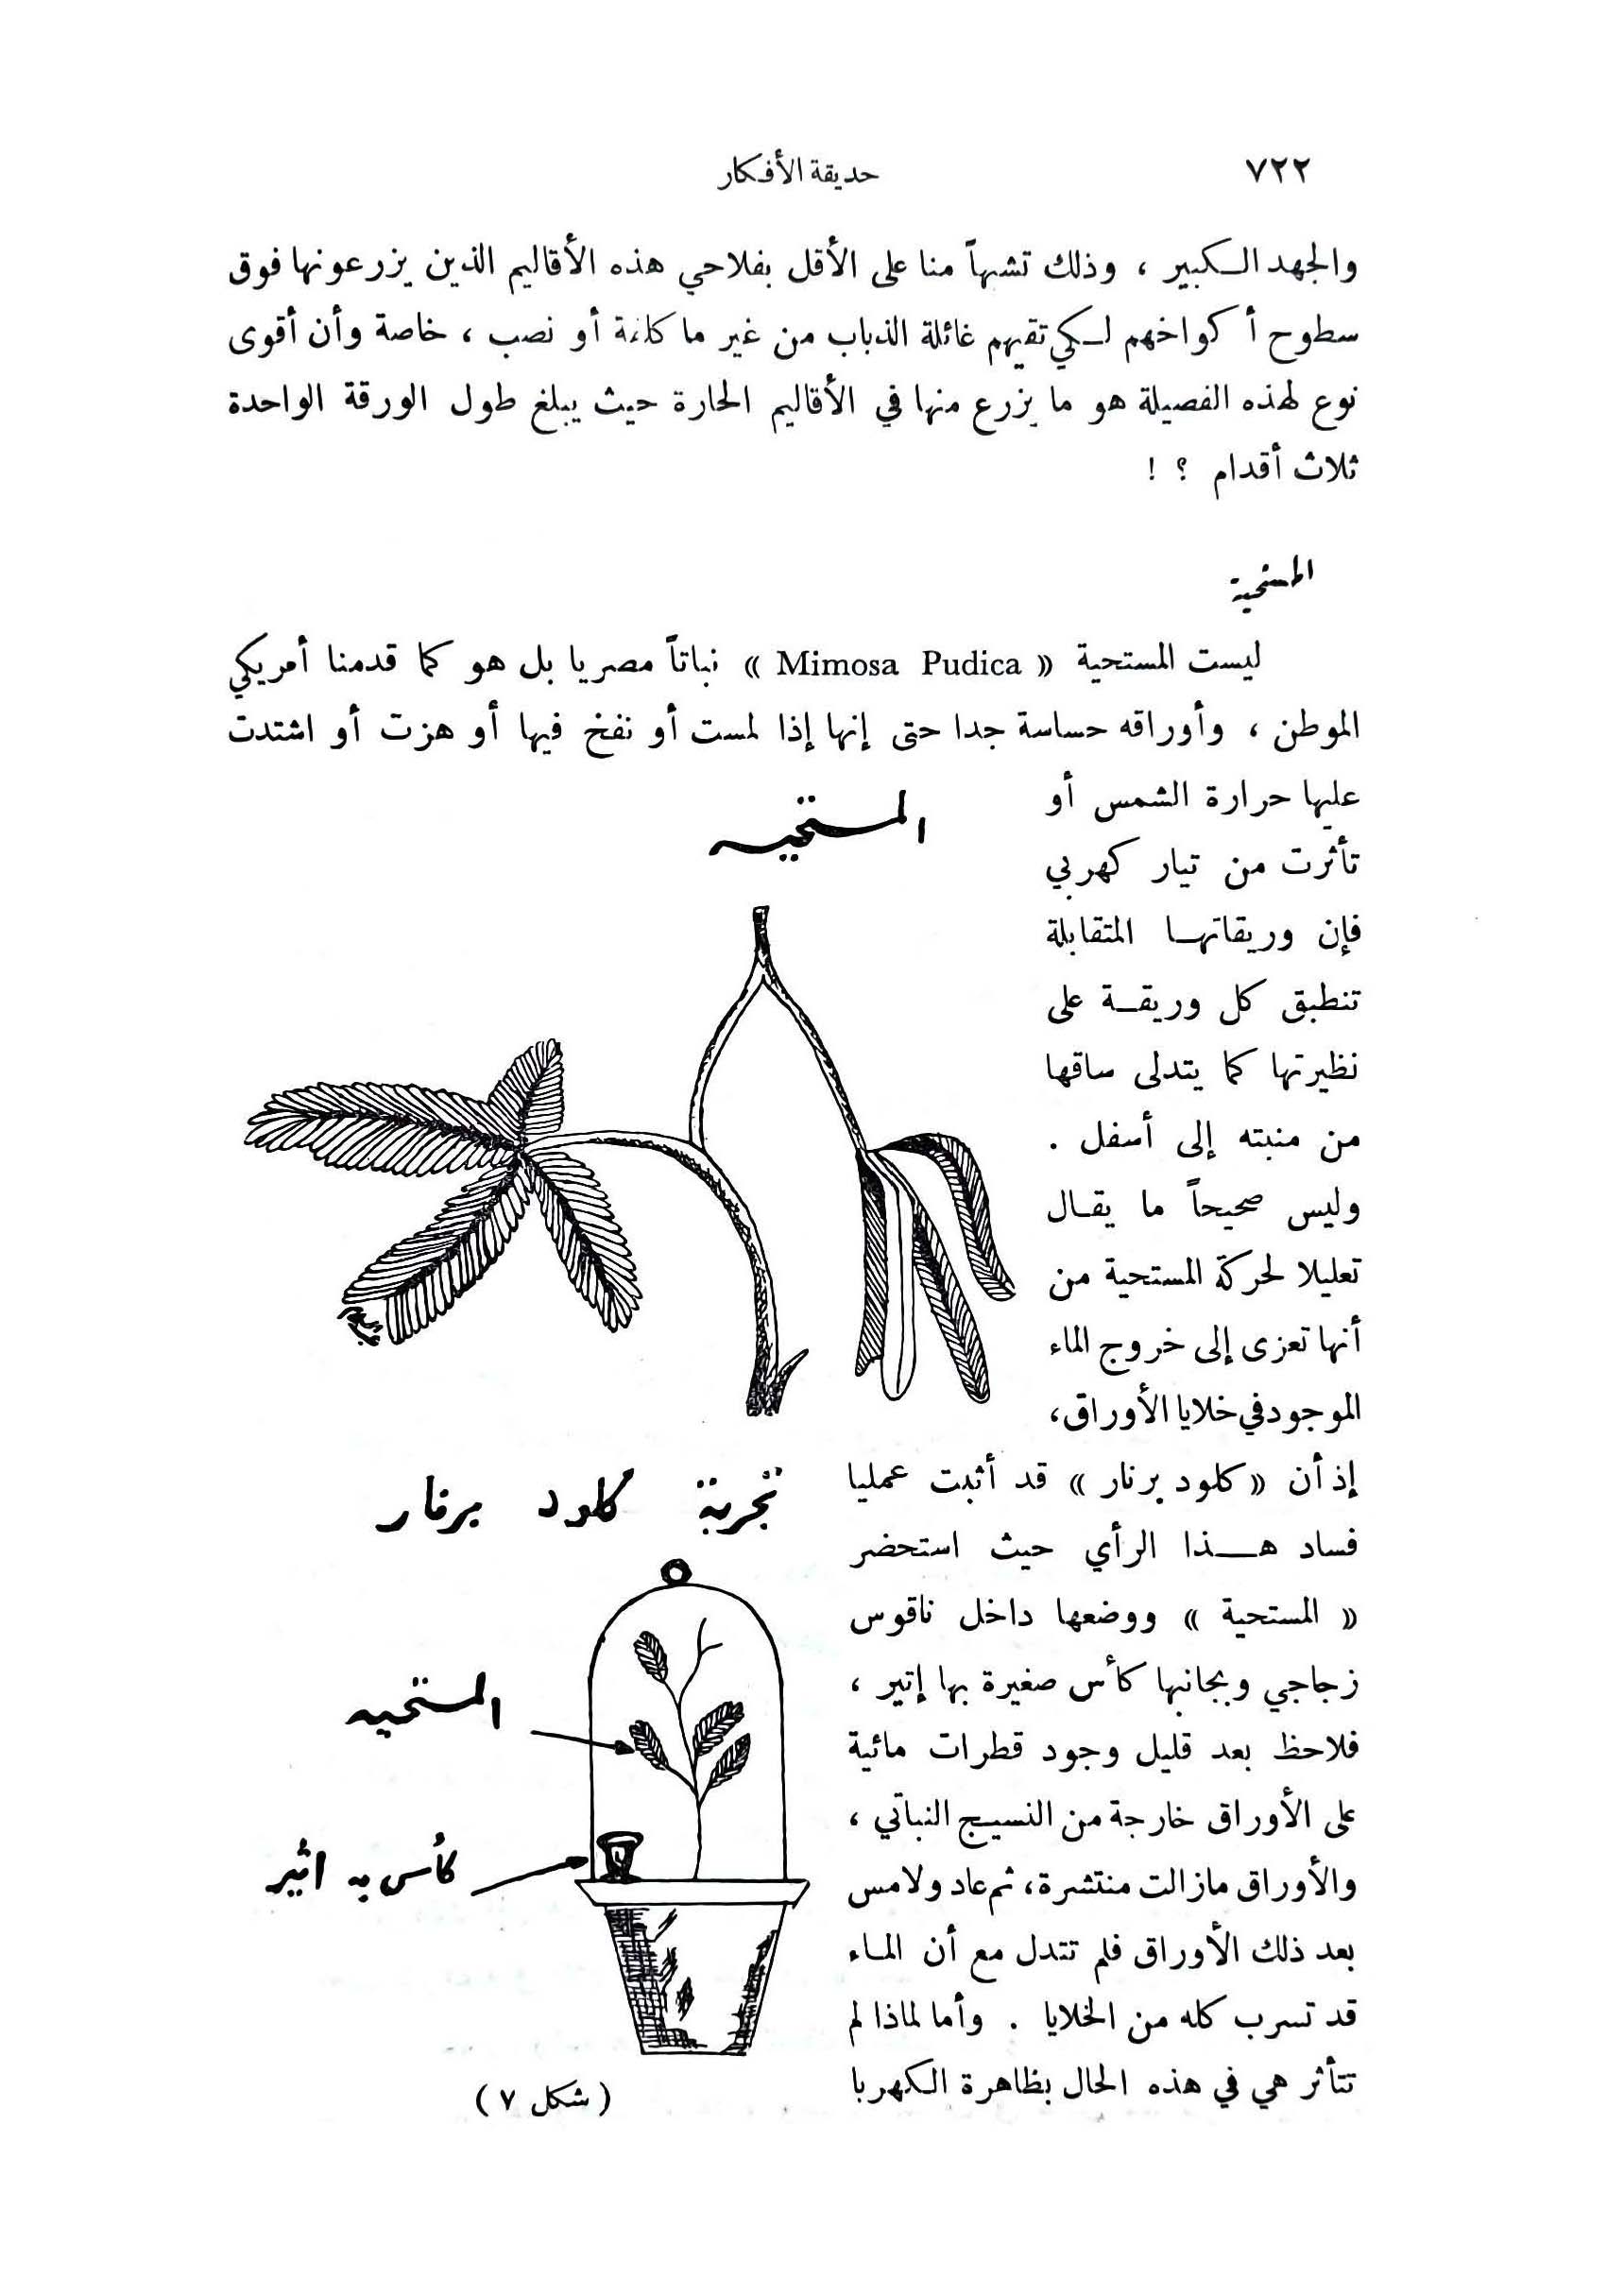 ٧٢٢
حديقة الأفكار
والجهد الكبير ، وذلك تشبهاً منا على الأقل بفلاحي هذه الأقاليم الذين يزرعونها فوق
سطوح أكواخهم لكي تقيهم غائلة الذباب من غير ما كلفة أو نصب ، خاصة وأن أقوى
نوع لهذه الفصيلة هو ما يزرع منها في الأقاليم الحارة حيث يبلغ طول الورقة الواحدة
ثلاث أقدام ؟ !
المستحية
ليست المستحية « Mimosa Pudica » نباتاً مصريا بل هو كما قدمنا أمريكي
الموطن ، وأوراقه حساسة جدا حتى إنها إذا لمست أو نفخ فيها أو هزت أو اشتدت
عليها حرارة الشمس أو
تأثرت من تيار كهربي
فإن وريقاتها المتقابلة
تنطبق كل وريقة على
نظيرتها كما يتدلى ساقها
من منبته إلى أسفل .
وليس صحيحاً ما يقال
تعليلا لحركة المستحية من
أنها تعزى إلى خروج الماء
الموجود في خلايا الأوراق،
إذ أن « كلود برنار » قد أثبت عمليا
فساد هذا الرأي حيث استحضر
« المستحية » ووضعها داخل ناقوس
زجاجي وبجانبها كأس صغيرة بها إتير ،
فلاحظ بعد قليل وجود قطرات مائية
على الأوراق خارجة من النسيج النباتي ،
والأوراق مازالت منتشرة، ثم عاد ولامس
بعد ذلك الأوراق فلم تتدل مع أن الماء
قد تسرب كله من الخلايا . وأما لماذا لم
تتأثر هي في هذه الحال بظاهرة الكهربا
المستحيه
تجربة كلود برنار
المستحيه
كأس به اثير
( شكل ٧ )